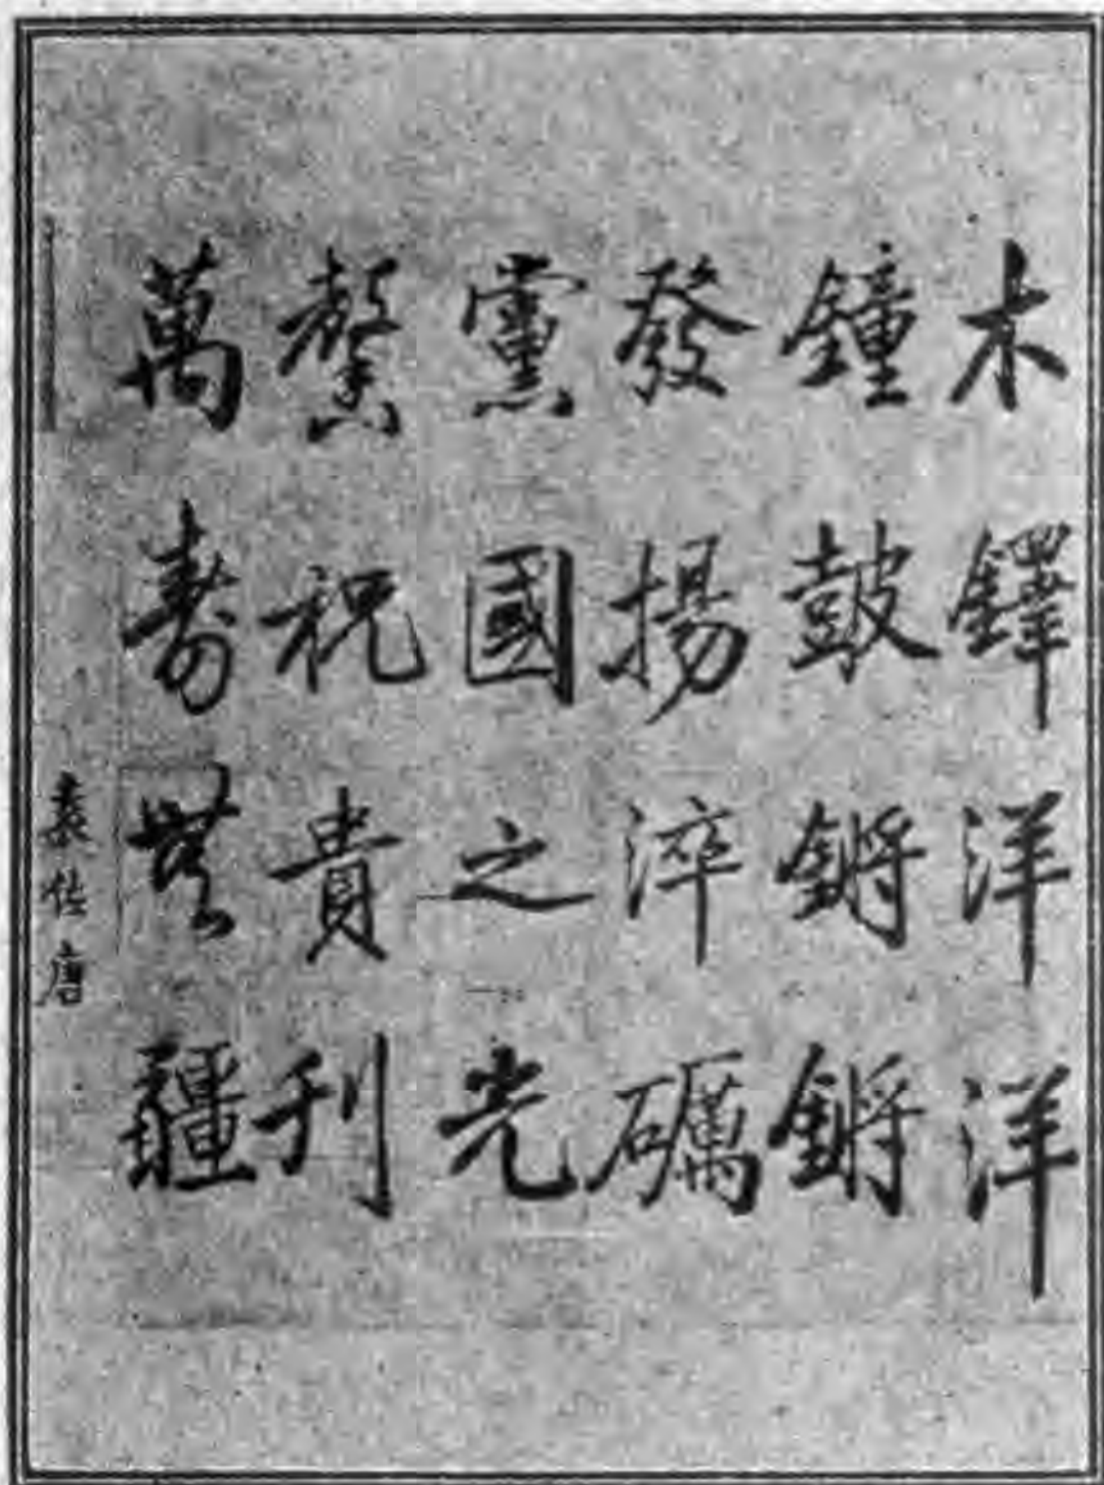 木鐸洋洋
鐘鼓鏘鏘
發揚淬礪
黨國之光
馨祝貴刊
萬壽無疆
袁佐唐